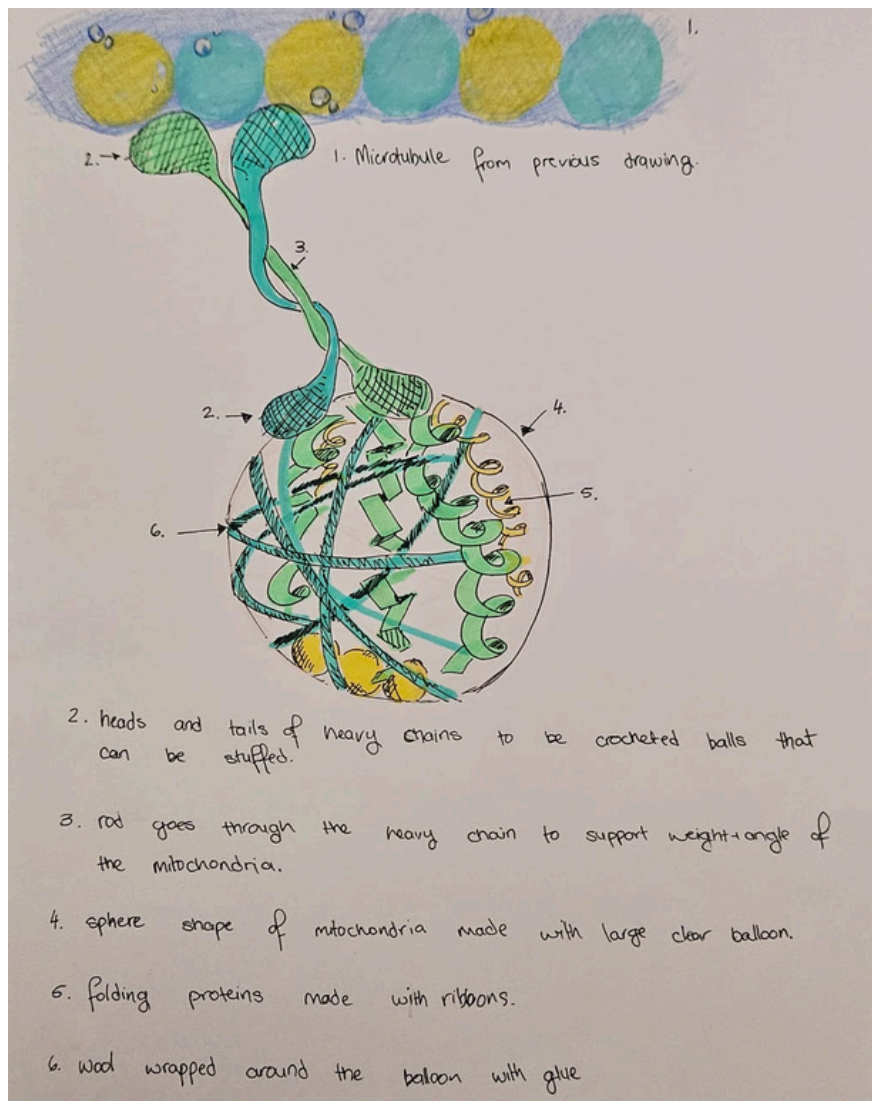 1.
2.
1. Microtubule from previous drawing.
3.
2.
4.
5.
6.
2. heads and tails of heavy chains to be crocheted balls that
can be stuffed.
3. rod goes through the heavy chain to support weight+angle of
the mitochondria.
4. sphere shape of mitochondria made with large clear balloon.
5. folding proteins made with ribbons.
6. wool wrapped around the balloon with glue